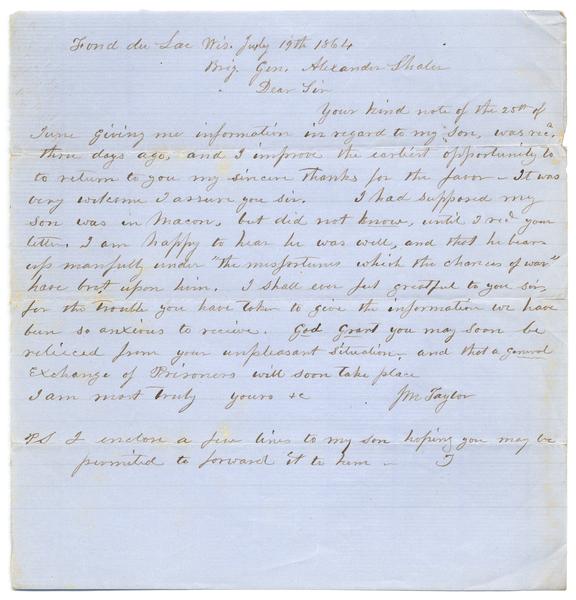 Fond du Lac Wis. July 19th 1864
Brig. Gen. Alexander Shaler
Dear Sir
Your kind note of the 25th of
June giving me information in regard to my son, was recd.
three days ago, and I improve the earliest opportunity to
to return to you my sincere thanks for the favor - It was
very welcome I assure you sir. I had supposed my
son was in Macon, but did not know, until I recd your
letter. I am happy to hear he was well, and that he bears
up manfully under "the misfortunes which the chances of war"
have brot upon him. I shall ever feel greatful to you sir,
for the trouble you have taken to give the information we have
been so anxious to recieve. God Grant you may soon be
relieced from your unpleasant situation, and that a general
Exchange of Prisoners will soon take place
I am most truly yours &c JM Taylor
PS I enclose a few lines to my son hoping you may be
permited to forward it to him - T